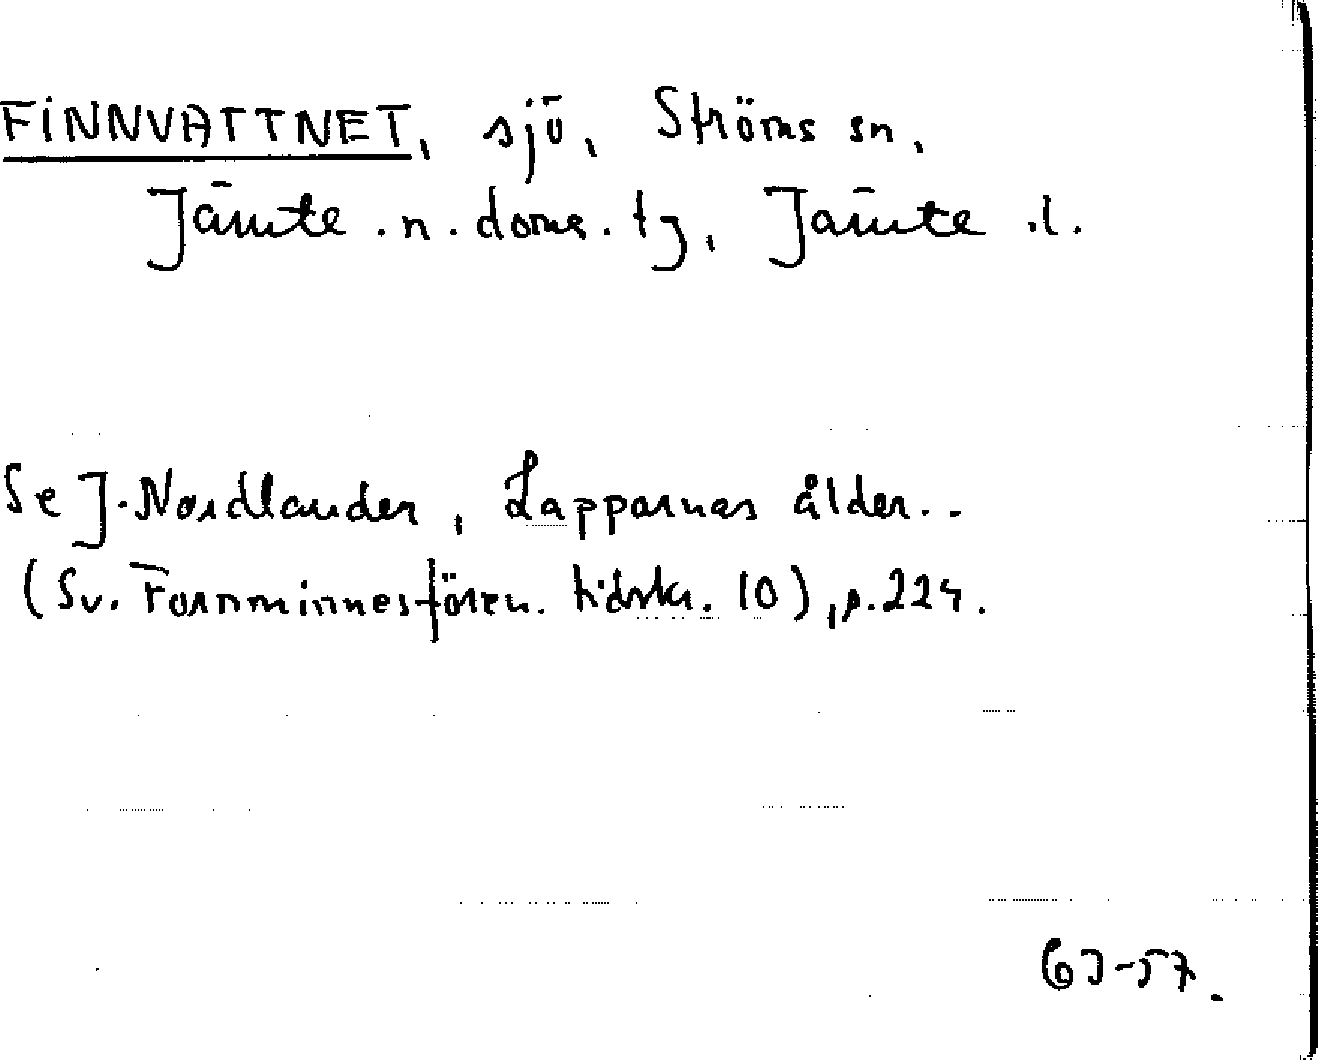 FINNVATTNET, sjö, Ströms sn,
Jämte.n.doms.tg, Jämte.l.
Se J. Nordlander, Lapparnas ålder..
(Sv. Fornminnesfören. tidskr. 10), p.224.
GJ-57.